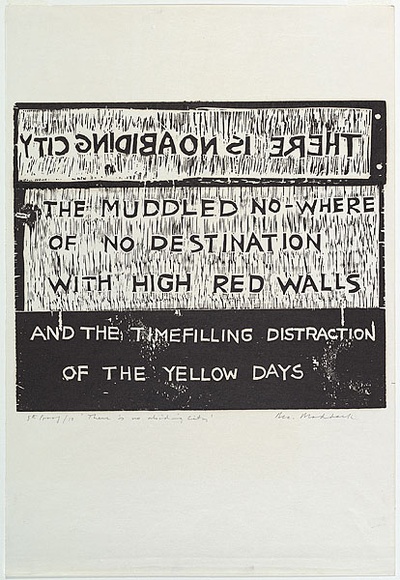 THERE IS NO ABIDING CITY
THE MUDDLED NO-WHERE
OF NO DESTINATION
WITH HIGH RED WALLS
AND THE TIMEFILLING DISTRACTION
OF THE YELLOW DAYS
'There is no abiding city' Bea. Maddock